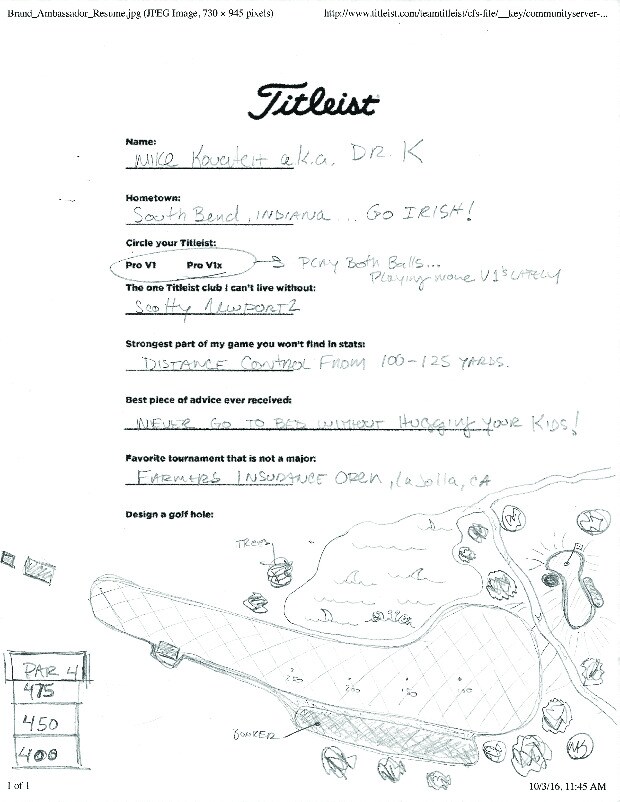 Brand_Ambassador_Resume.jpg (JPEG Image, 730 × 945 pixels) http://www.titleist.com/teamtitleist/cfs-file/__key/communityserver-...
Titleist
Name:
MIKE a.k.a. DR. K
Hometown:
South Bend, INDIANA ... GO IRISH!
Circle your Titleist:
Pro V1 Pro V1x → PLAY Both Balls...
Playing more V1's LATELY
The one Titleist club I can't live without:
Scotty NEWPORT 2
Strongest part of my game you won't find in stats:
DISTANCE CONTROL FROM 100-125 YARDS.
Best piece of advice ever received:
NEVER GO TO BED WITHOUT Hugging YOUR KIDS!
Favorite tournament that is not a major:
FARMERS INSURANCE OPEN, La Jolla, CA
Design a golf hole:
TREES
PAR 4
475
450
400
250
200
150
BUNKER
1 of 1 10/3/16, 11:45 AM